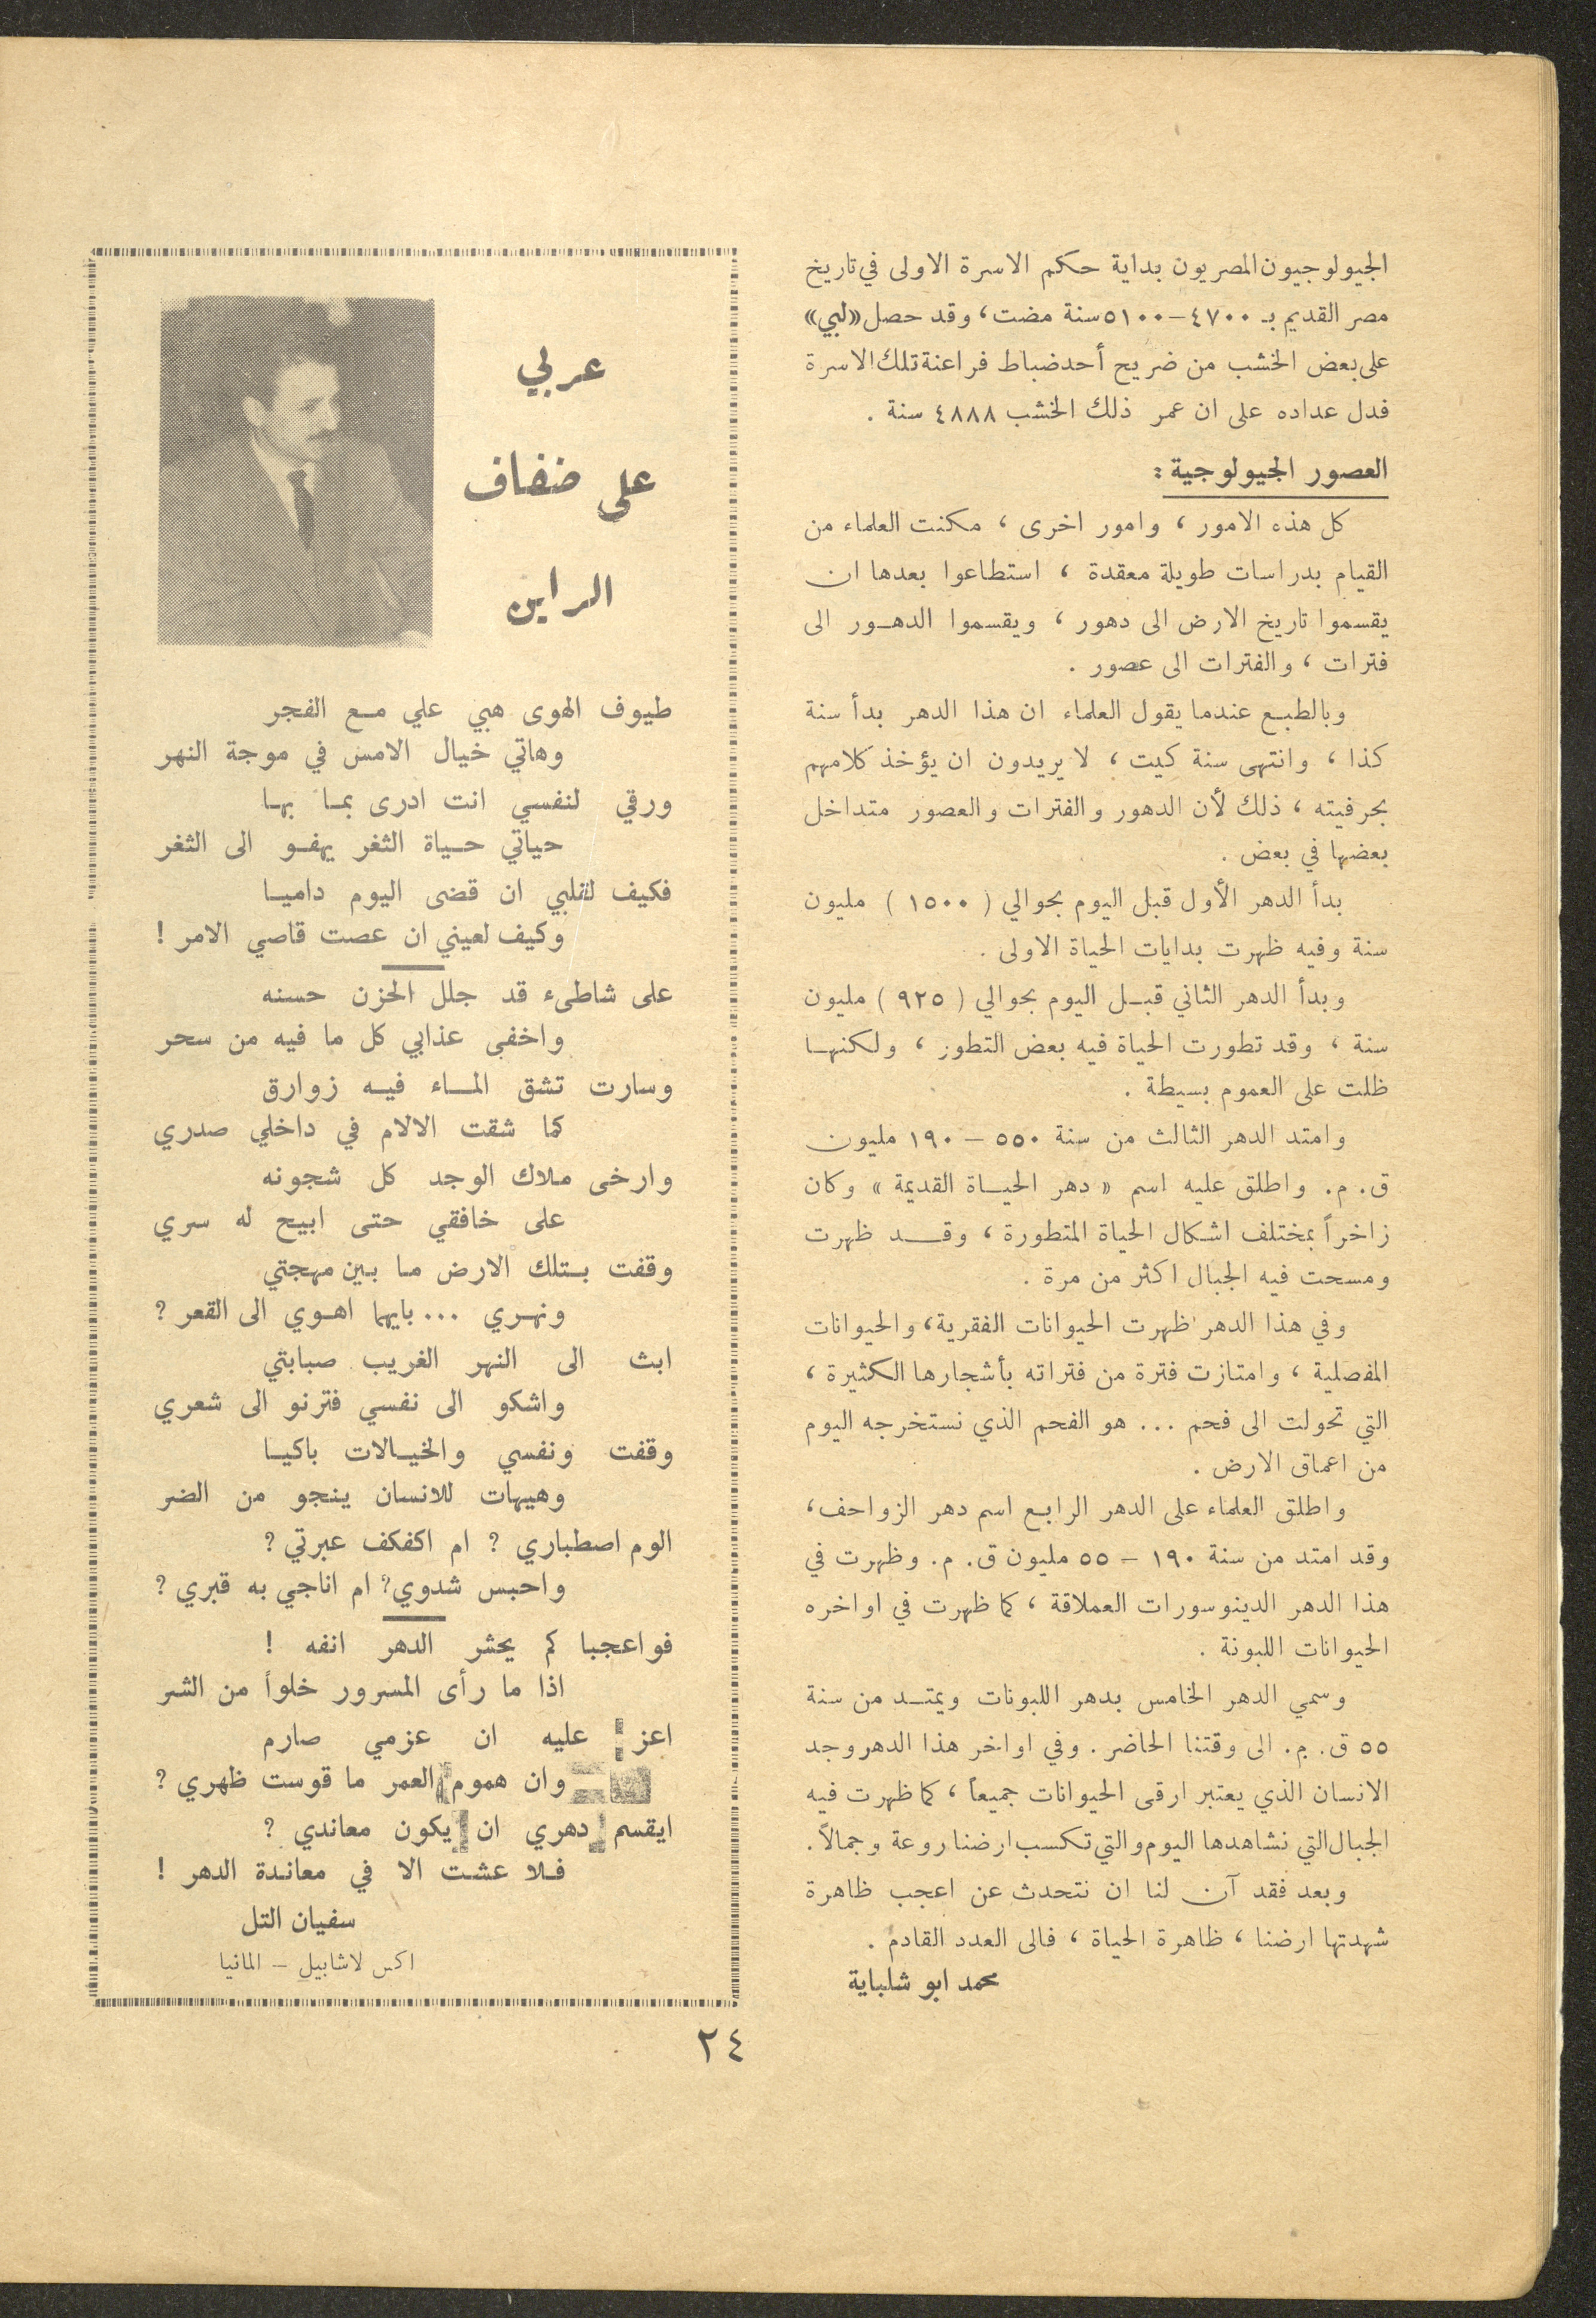 الجيولوجيون المصريون بداية حكم الاسرة الاولى في تاريخ
مصر القديم بـ ٤٧٠٠ – ٥١٠٠ سنة مضت، وقد حصل «لبي»
على بعض الخشب من ضريح أحد ضباط فراعنة تلك الاسرة
فدل عداده على ان عمر ذلك الخشب ٤٨٨٨ سنة .
العصور الجيولوجية :
كل هذه الامور ، وامور اخرى ، مكنت العلماء من
القيام بدراسات طويلة معقدة ، استطاعوا بعدها ان
يقسموا تاريخ الارض الى دهور ، ويقسموا الدهـور الى
فترات ، والفترات الى عصور .
وبالطبـع عندما يقول العلماء ان هذا الدهر بدأ سنة
كذا ، وانتهى سنة كيت ، لا يريدون ان يؤخذ كلامهم
بحرفيته ، ذلك لأن الدهور والفترات والعصور متداخل
بعضها في بعض .
بدأ الدهر الأول قبل اليوم بحوالي ( ١٥٠٠ ) مليون
سنة وفيه ظهرت بدايات الحياة الاولى .
وبدأ الدهر الثاني قبـل اليوم بحوالي ( ٩٢٥ ) مليون
سنة ، وقد تطورت الحياة فيه بعض التطور ، ولكنهـا
ظلت على العموم بسيطة .
وامتد الدهر الثالث من سنة ٥٥٠ – ١٩٠ مليون
ق. م. واطلق عليه اسم « دهر الحيـاة القديمة » وكان
زاخراً بمختلف اشكال الحياة المتطورة ، وقـد ظهرت
ومسحت فيه الجبال اكثر من مرة .
وفي هذا الدهر ظهرت الحيوانات الفقرية، والحيوانات
المفصلية ، وامتازت فترة من فتراته بأشجارها الكثيرة ،
التي تحولت الى فحم ... هو الفحم الذي نستخرجه اليوم
من اعماق الارض .
واطلق العلماء على الدهر الرابع اسم دهر الزواحف،
وقد امتد من سنة ١٩٠ – ٥٥ مليون ق. م. وظهرت في
هذا الدهر الدينوسورات العملاقة ، كما ظهرت في اواخره
الحيوانات اللبونة .
وسمي الدهر الخامس بدهر اللبونات ويمتـد من سنة
٥٥ ق. م. الى وقتنا الحاضر. وفي اواخر هذا الدهر وجد
الانسان الذي يعتبر ارقى الحيوانات جميعاً ، كما ظهرت فيه
الجبال التي نشاهدها اليوم والتي تكسب ارضنا روعة وجمالاً.
وبعد فقد آن لنا ان نتحدث عن اعجب ظاهرة
شهدتها ارضنا ، ظاهرة الحياة ، فالى العدد القادم .
محمد ابو شلباية
عربي
على ضفاف
الراين
طيوف الهوى هبي علي مـع الفجر
وهاتي خيال الامس في موجة النهر
ورقي لنفسي انت ادرى بمـا بهـا
حياتي حـياة الثغر يهفـو الى الثغر
فكيف لقلبي ان قضى اليوم داميـا
وكيف لعيني ان عصت قاصي الامر !
على شاطىء قد جلل الحزن حسنه
واخفى عذابي كل ما فيه من سحر
وسارت تشق المـاء فيـه زوارق
كما شقت الالام في داخلي صدري
وارخى ملاك الوجد كل شجونه
على خافقي حتى ابيح له سري
وقفت بـتلك الارض مـا بـين مهجتي
ونهـري ... بايهما اهـوي الى القعر ?
ابث الى النهر الغريب صبابتي
واشكو الى نفسي فترنو الى شعري
وقفت ونفسي والخيـالات باكيـا
وهيهات للانسان ينجو من الضر
الوم اصطباري ? ام اكفكف عبرتي ?
واحبس شدوي? ام اناجي به قبري ?
فواعجبا كم يحشر الدهر انفه !
اذا ما رأى المسرور خلواً من الشر
اعز عليه ان عزمي صارم
وان هموم العمر ما قوست ظهري ?
ايقسم دهري ان يكون معاندي ?
فـلا عشت الا في معاندة الدهر !
سفيان التل
اكس لاشابيل – المانيا
٢٤